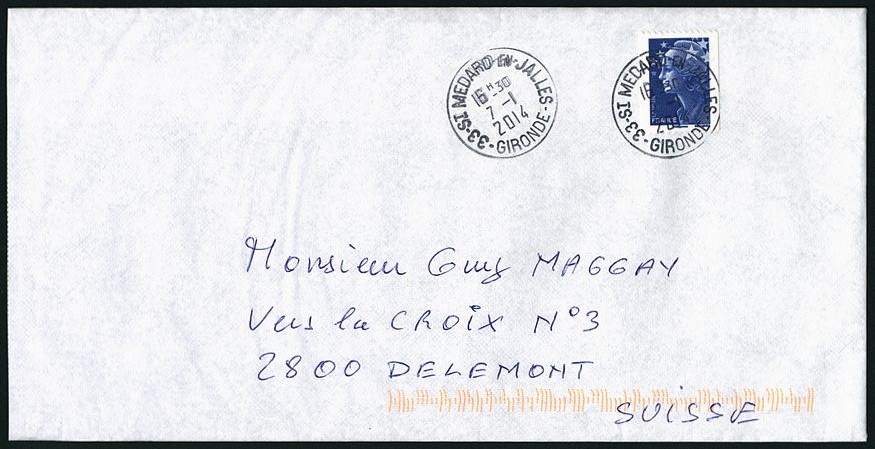 33-ST MEDARD-EN-JALLES
16H-30
7-1
2014
-GIRONDE-
33-ST MEDARD-EN-JALLES
16
20
-GIRONDE-
FRANCE
Monsieur Guy MAGGAY
Vers la CROIX N°3
2800 DELEMONT
SUISSE